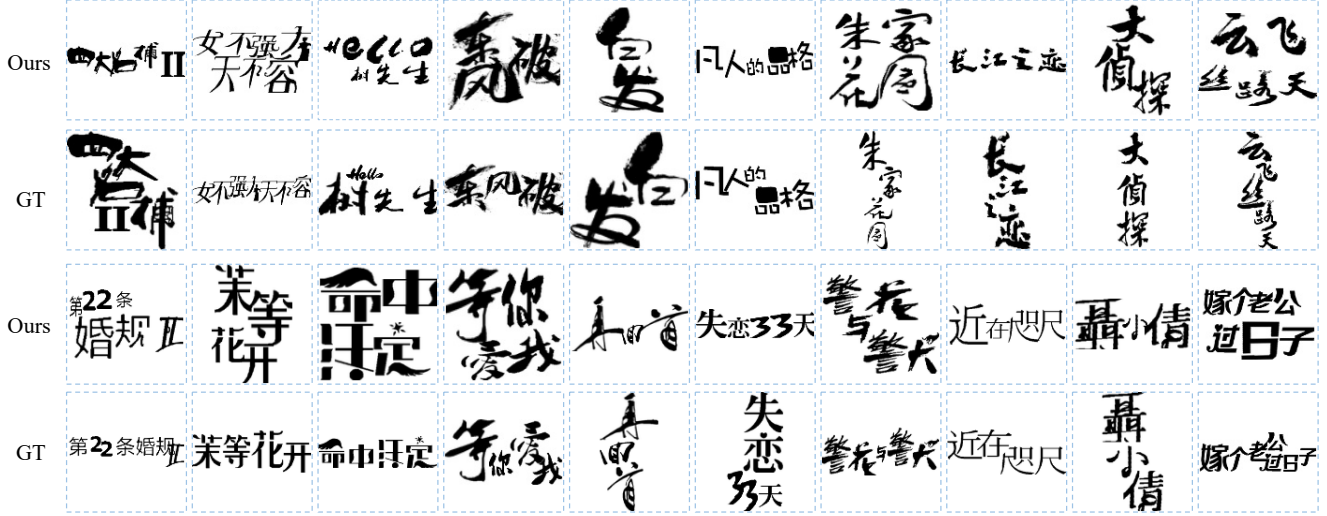 Ours
四大名捕 II
女不强大
天不容
Hello
树先生
东风破
白发
凡人的品格
朱家
花园
长江之恋
大偵探
云飞
丝路天
GT
四大名捕
II
女不强大天不容
Hello
树先生
东风破
白发
凡人的
品格
朱家花园
长江之恋
大偵探
云飞丝路天
Ours
第22条
婚规 II
茉等
花开
命中
注定
等你
爱我
再回首
失恋33天
警花
与
警犬
近在咫尺
聶小倩
嫁个老公
过日子
GT
第22条婚规II
茉等花开
命中注定
等你爱我
再回首
失恋
33天
警花与警犬
近在咫尺
聶小倩
嫁个老公过日子